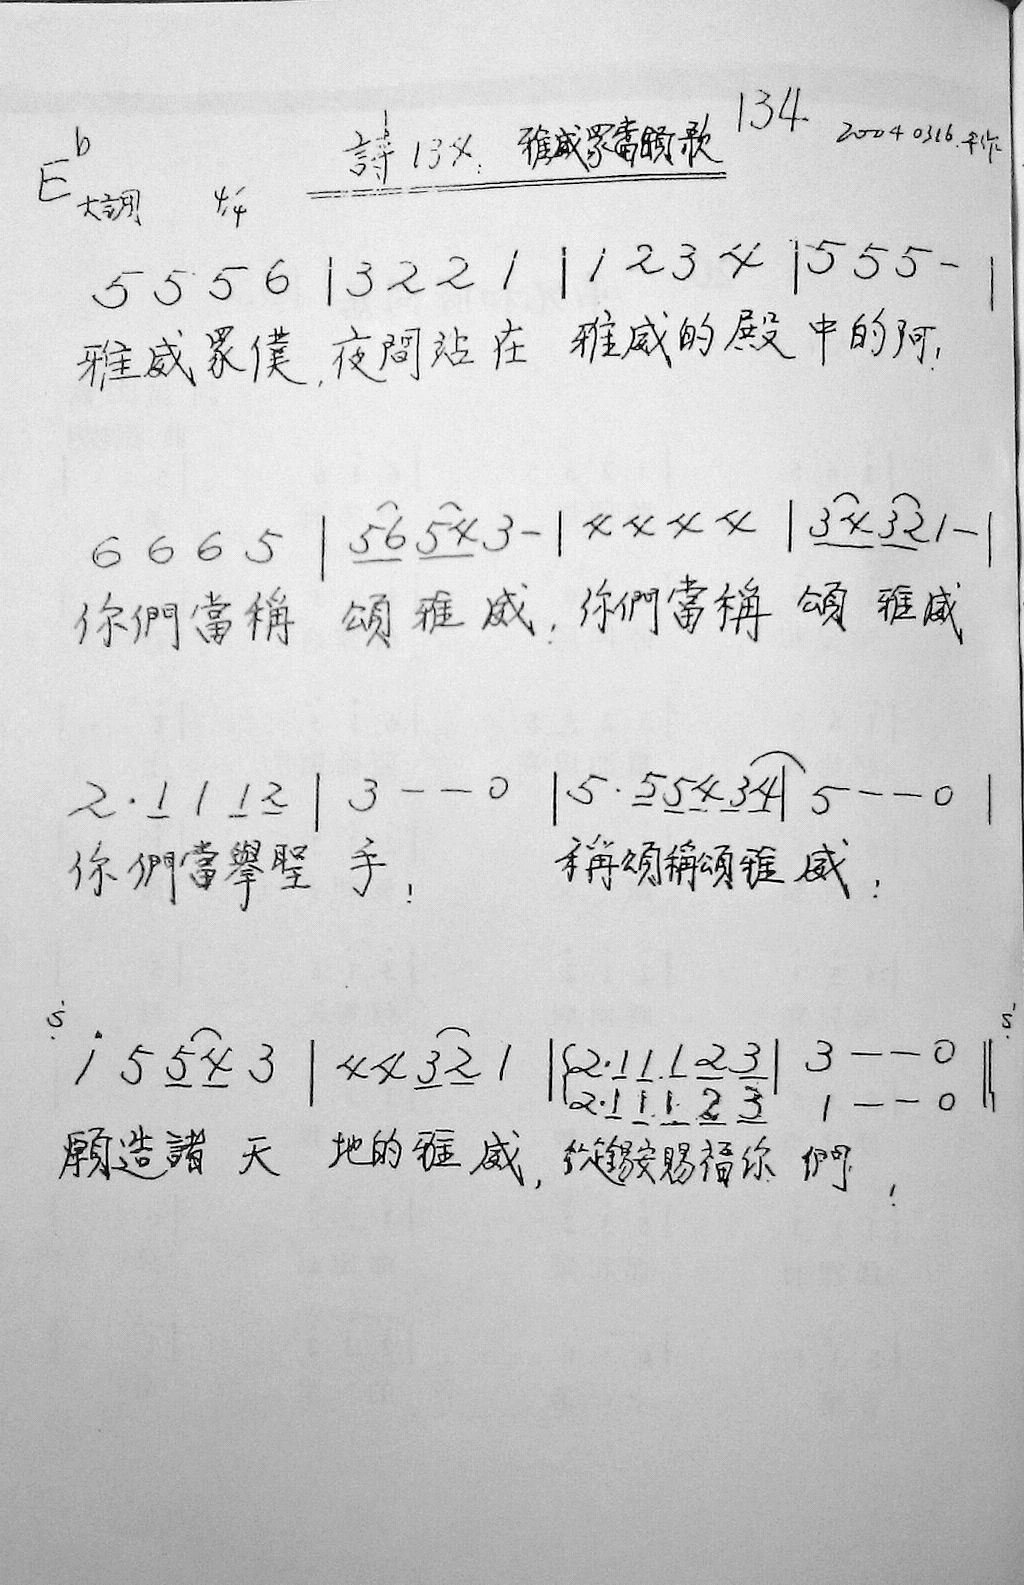 134
詩134. 雅威眾當頌歌 20040316.
E b 大調 4/4
5 5 5 6 | 3 2 2 1 | 1 2 3 4 | 5 5 5 - |
雅威眾僕,夜間站在 雅威的殿中的阿!
6 6 6 5 | 56 54 3 - | 4 4 4 4 | 34 32 1 - |
你們當稱 頌雅威. 你們當稱 頌雅威
2 · 1 1 12 | 3 - - 0 | 5 · 5 5 4 34 | 5 - - 0 |
你們當舉聖 手! 稱頌稱頌雅威!
i 5 54 3 | 4 4 32 1 | { 2 · 1 1 1 2 3 | 3 - - 0 ‖
2 · 1 1 1 2 3 1 - - 0
願造諸天 地的雅威, 賜福你們!